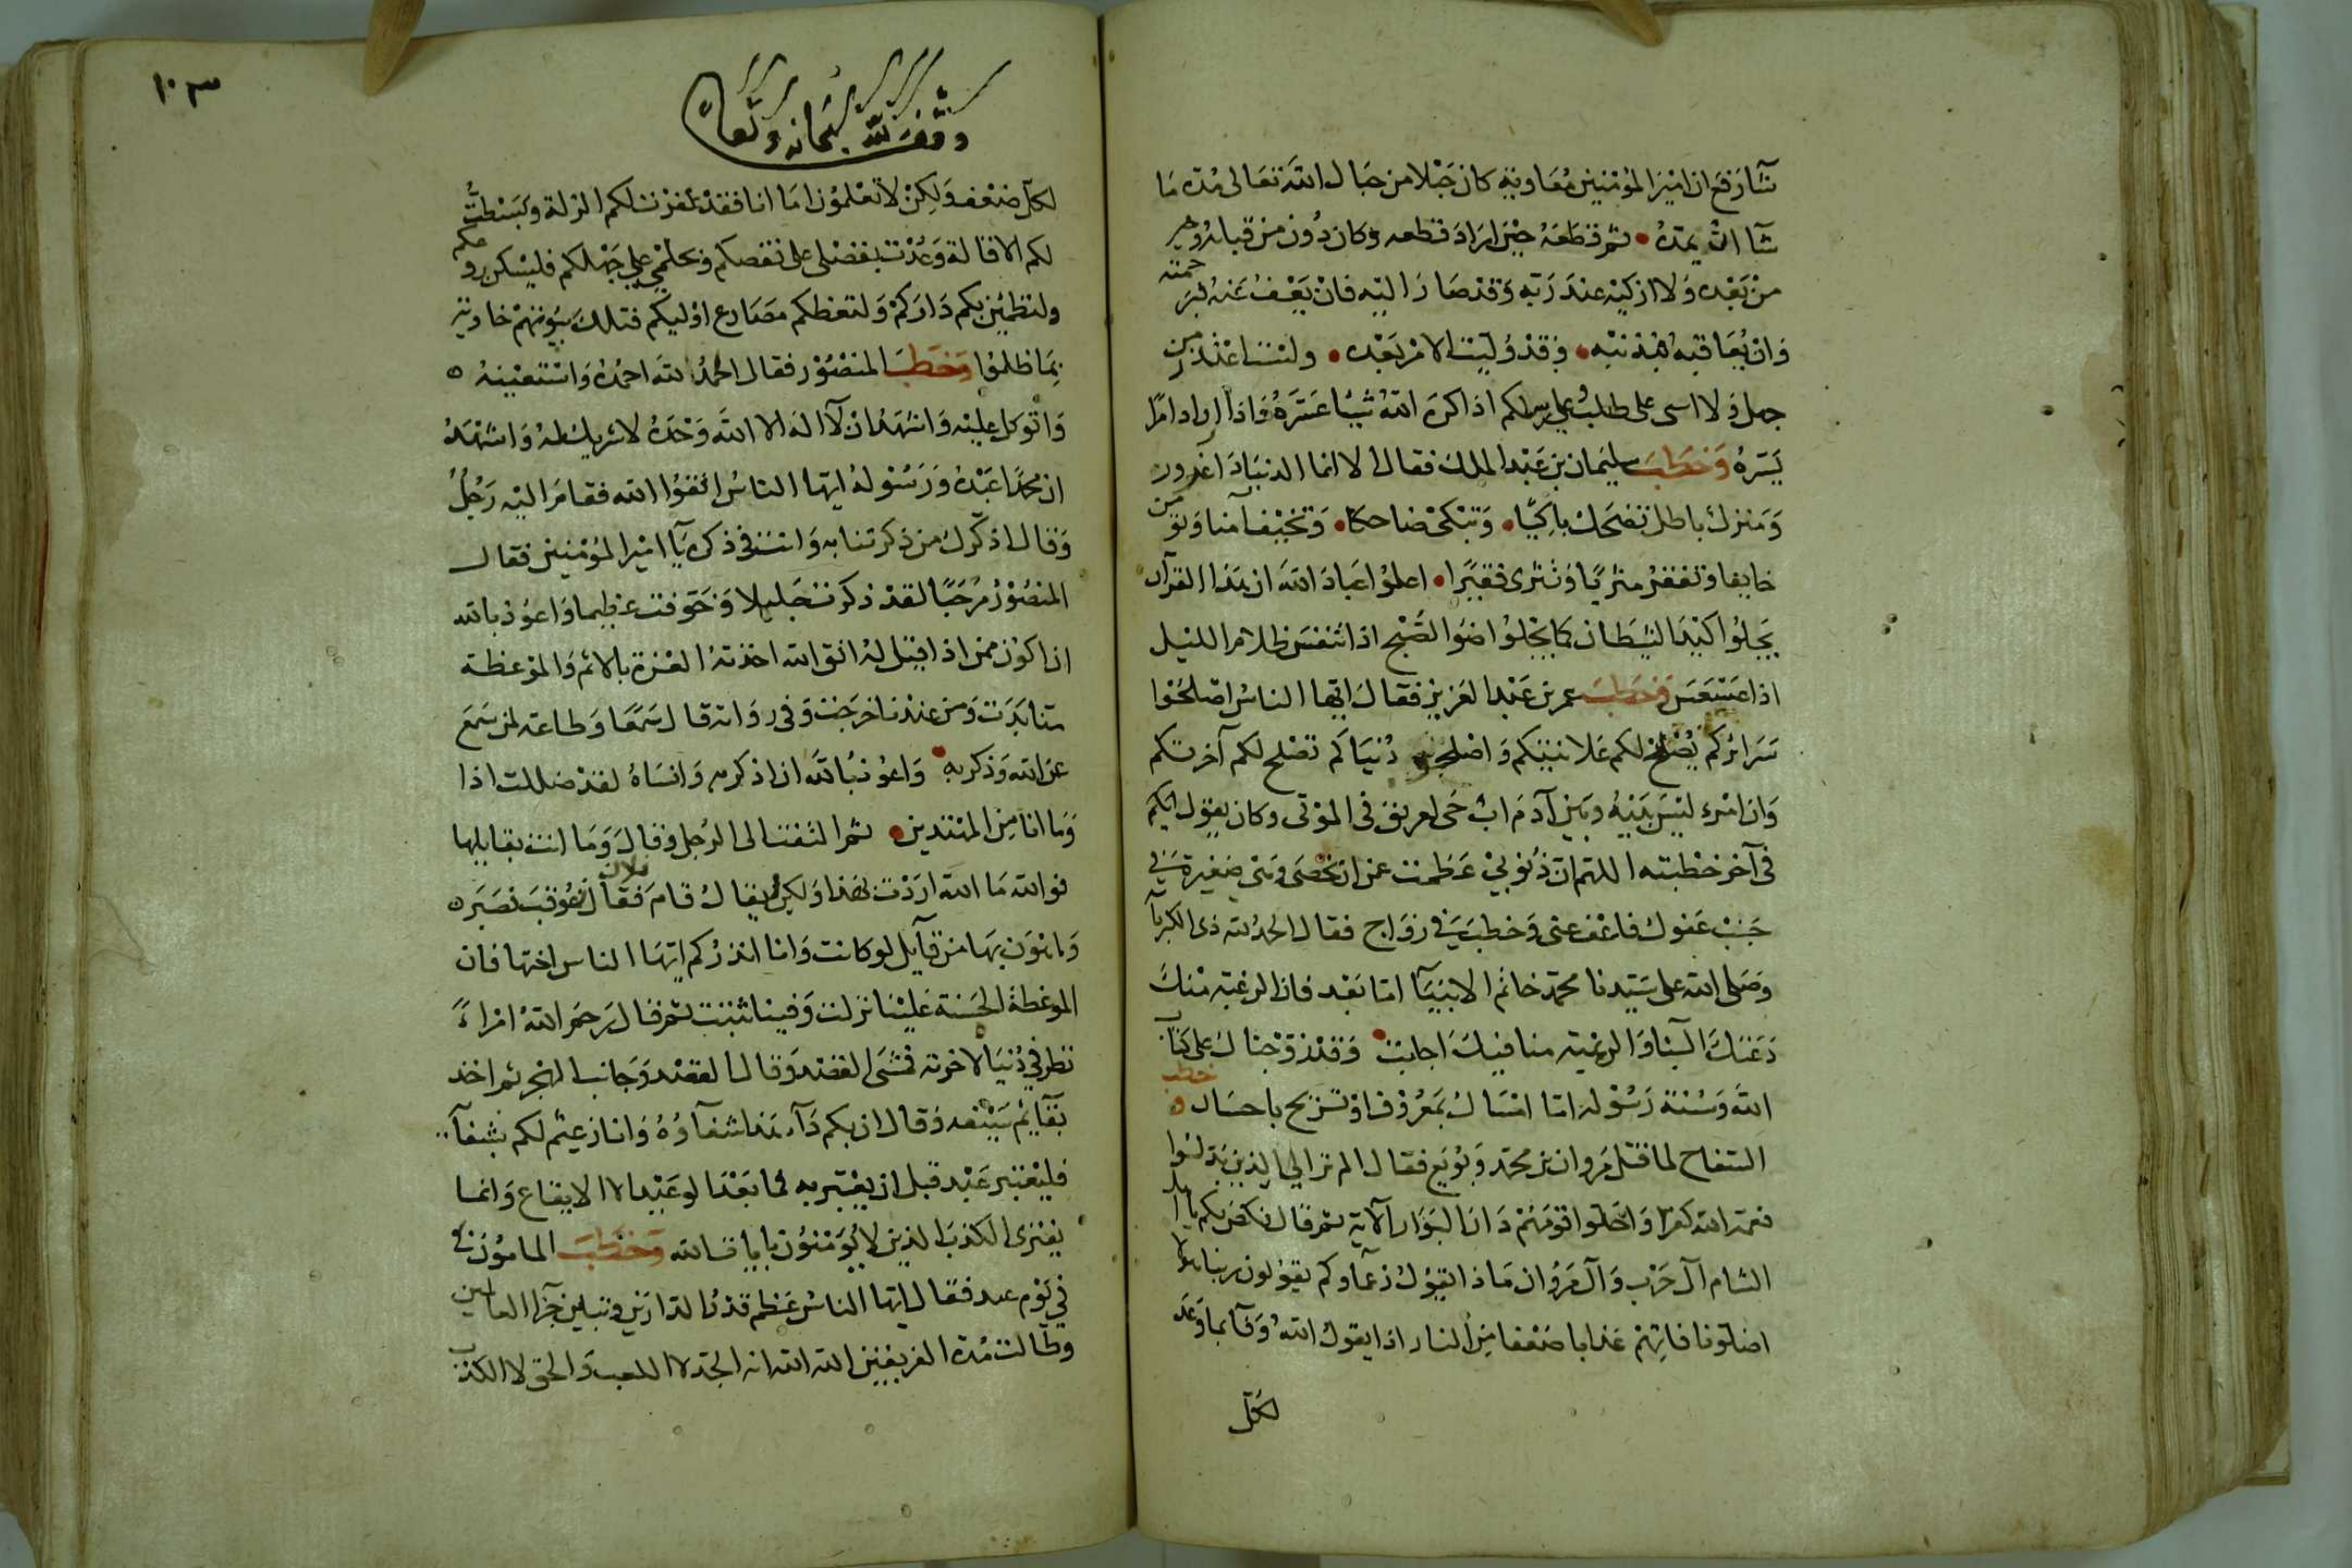 شآ رفع ان امير المؤمنين معاوية كان حبلا من حبال الله تعالى مده ما
شآ الله يمده • ثم قطعه حين اراد قطعه وكان دون من قبله وخير
من بعده ولا ازكيه عند ربه وقد صار اليه فان يعف عنه فبرحمته
وان يعاقبه فبذنبه • وقد وليت الامر بعده • ولست اعتذر من
جهل ولا اسى على طلب على رسلكم اذا كره الله شيئا عسره واذا اراد امرا
يسره وخطب سليمان بن عبد الملك فقال الا انما الدنيا دار غرور
ومنزل باطل تضحك باكيا • وتبكي ضاحكا • وتخيف آمنا وتومن
خايفا وتفقر مثريا وتثرى فقيرا • اعلموا عباد الله ان هذا القرآن
يجلوا كيد الشيطان كما يجلوا ضوا الصبح اذا تنفس ظلام الليل
اذا عسعس وخطب عمر بن عبد العزيز فقال ايها الناس اصلحوا
سرائركم يصلح لكم علانيتكم واصلحوا دنياكم تصلح لكم آخرتكم
وان امرء ليس بينه وبين آدم اب حى لعريق فى الموتى وكان يقول لكم
فى آخر خطبته اللهم ان ذنوبي عظمت عن ان تحصى وهى صغيرة في
جنب عفوك فاعف عنى وخطب في زواج فقال الحمد لله ذى الكبريآ
وصلى الله على سيدنا محمد خاتم الانبيآ اما بعد فان الرغبة منك
دعتك الينا والرغبة منا فيك اجابت • وقد زوجناك على كتاب
الله وسنة رسوله اما امساك بمعروف او تسريح باحسان خطب
السفاح لما قتل مروان بن محمد وبويع فقال الم تر الى الذين بدلوا
نعمة الله كفرا واحلوا قومهم دار البوار الآية ثم قال نكص بكم يا اهل
الشام آل حرب وآل مروان ماذا يقول زعماوكم يقولون ربنا هولا
اضلونا فاتهم عذابا ضعفا من النار اذا يقول الله وقآ بما وعد
لكل
١٠٣
وقف لله سبحانه وتعالى
لكل ضعف ولكن لا تعلمون اما انا فقد غفرت لكم الزلة وبسطت
لكم الاقالة وعدت بفضلى على نقصكم وبحلمي على جهلكم فليسكن روعكم
ولتطمئن بكم داركم ولتعظكم مصارع اوليكم فتلك بيوتهم خاوية
بما ظلموا وخطب المنصور فقال الحمد لله احمده واستعينه
واتوكل عليه واشهد ان لا اله الا الله وحده لا شريك له واشهد
ان محمدا عبده ورسوله ايها الناس اتقوا الله فقام اليه رجل
وقال اذكرك من ذكرتنا به وانت في ذكره يآ امير المؤمنين فقال
المنصور مرحبا لقد ذكرت جليلا وخوفت عظيما واعوذ بالله
ان اكون ممن اذا قيل له اتق الله اخذته العزة بالاثم والموعظة
منا بدت ومن عندنا خرجت وفى رواية قال سمعا وطاعة لمن سمع
عن الله وذكر به • واعوذ بالله ان اذكر به وانساه لقد ضللت اذا
وما انا من المهتدين • ثم التفت الى الرجل وقال وما انت بقايلها
فوالله ما الله اردت بهذا ولكن ليقال قام فلان فقال فعوقب فصبر
واهون بها من قآيل لو كانت وانا انذركم ايها الناس اختها فان
الموعظة الحسنة علينا نزلت وفينا ثبتت ثم قال رحم الله امراءً
نظر في دنياه لاخرته فمشى القصد وقال القصد وجانب الهجر ثم اخذ
بقآيم سيفه وقال ان بكم دآء هذا شفآوه وانا زعيم لكم بشفآء
فليعتبر عبد قبل ان يعتبر به فما بعد الوعيد الا الايقاع وانما
يفترى الكذب الذين لا يؤمنون بايات الله وخطب المامون
في يوم عيد فقال ايها الناس عظم قدر الدارين وتباين جزآ العاملين
وطالت مدة الفريقين الله الله انه الجد لا اللعب والحق لا الكذب